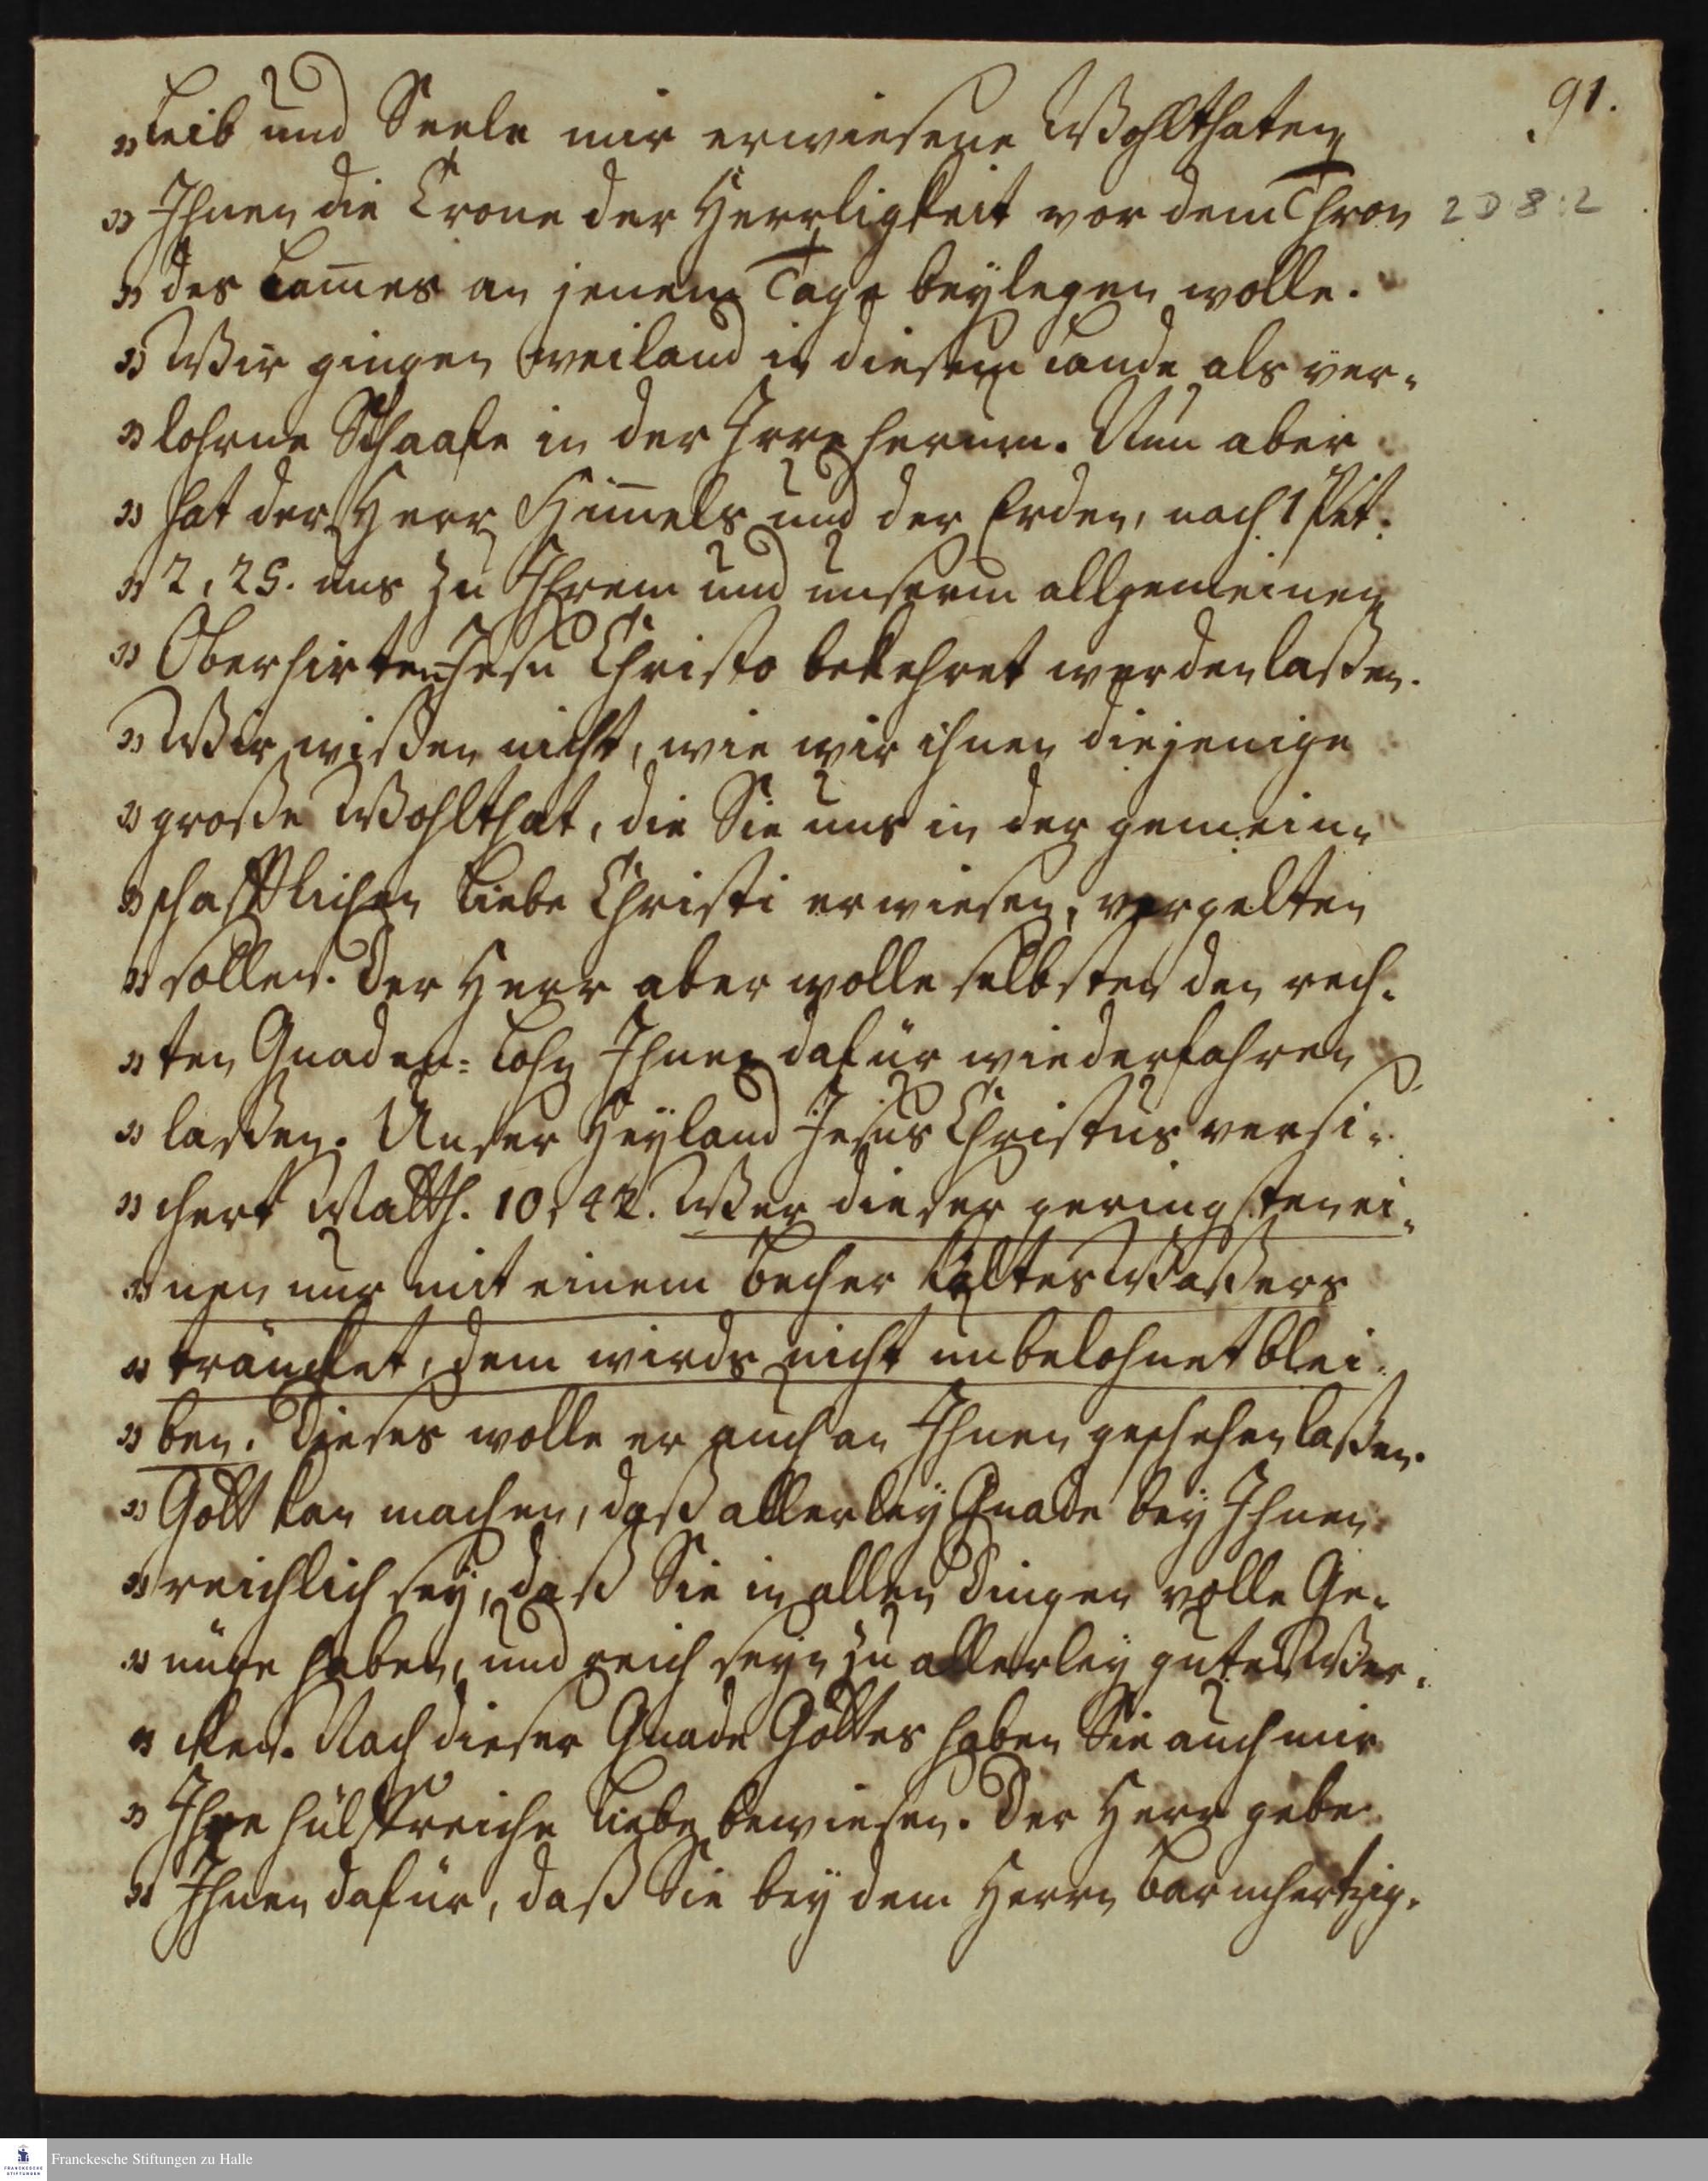 91.
„Leib und Seele mir erwiesene Wohlthaten
„Ihnen die Crone der Herrligkeit vor dem Thron
2D8:2
„des Lam̄es an jenem Tage beÿlegen wolle.
„Wir gingen weiland in diesem Lande als ver-
„lohrne Schaafe in der Irre herum. Nun aber
„hat der Herr Him̄els und der Erden, nach 1 Pet.
„2, 25. uns zu Ihrem und unserm allgemeinen
„Oberhirten Jesu Christo bekehret werden laßen.
„Wir wißen nicht, wie wir ihnen diejenige
„große Wohlthat, die Sie uns in der gemein-
„schafftlichen Liebe Christi erwiesen, vergelten
„sollen. Der Herr aber wolle selbsten den rech-
„ten Gnaden-Lohn Ihnen dafür wiederfahren
„laßen. Unser Heÿland Jesus Christus versi-
„chert Matth. 10, 42. Wer dieser geringsten ei-
„nen nur mit einem Becher kaltes Waßers
„träncket, dem wirds nicht unbelohnet blei-
„ben. Dieses wolle er auch an Ihnen geschehen laßen.
„Gott kan machen, daß allerleÿ Gnade beÿ Ihnen
„reichlich seÿ, daß Sie in allen Dingen volle Ge-
„nüge haben, und reich seÿn zu allerleÿ guten Wer-
„cken. Nach dieser Gnade Gottes haben Sie auch mir
„Ihre hülffreiche Liebe bewiesen. Der Herr gebe
„Ihnen dafür, daß Sie beÿ dem Herrn Barmhertzig-
Franckesche Stiftungen zu Halle